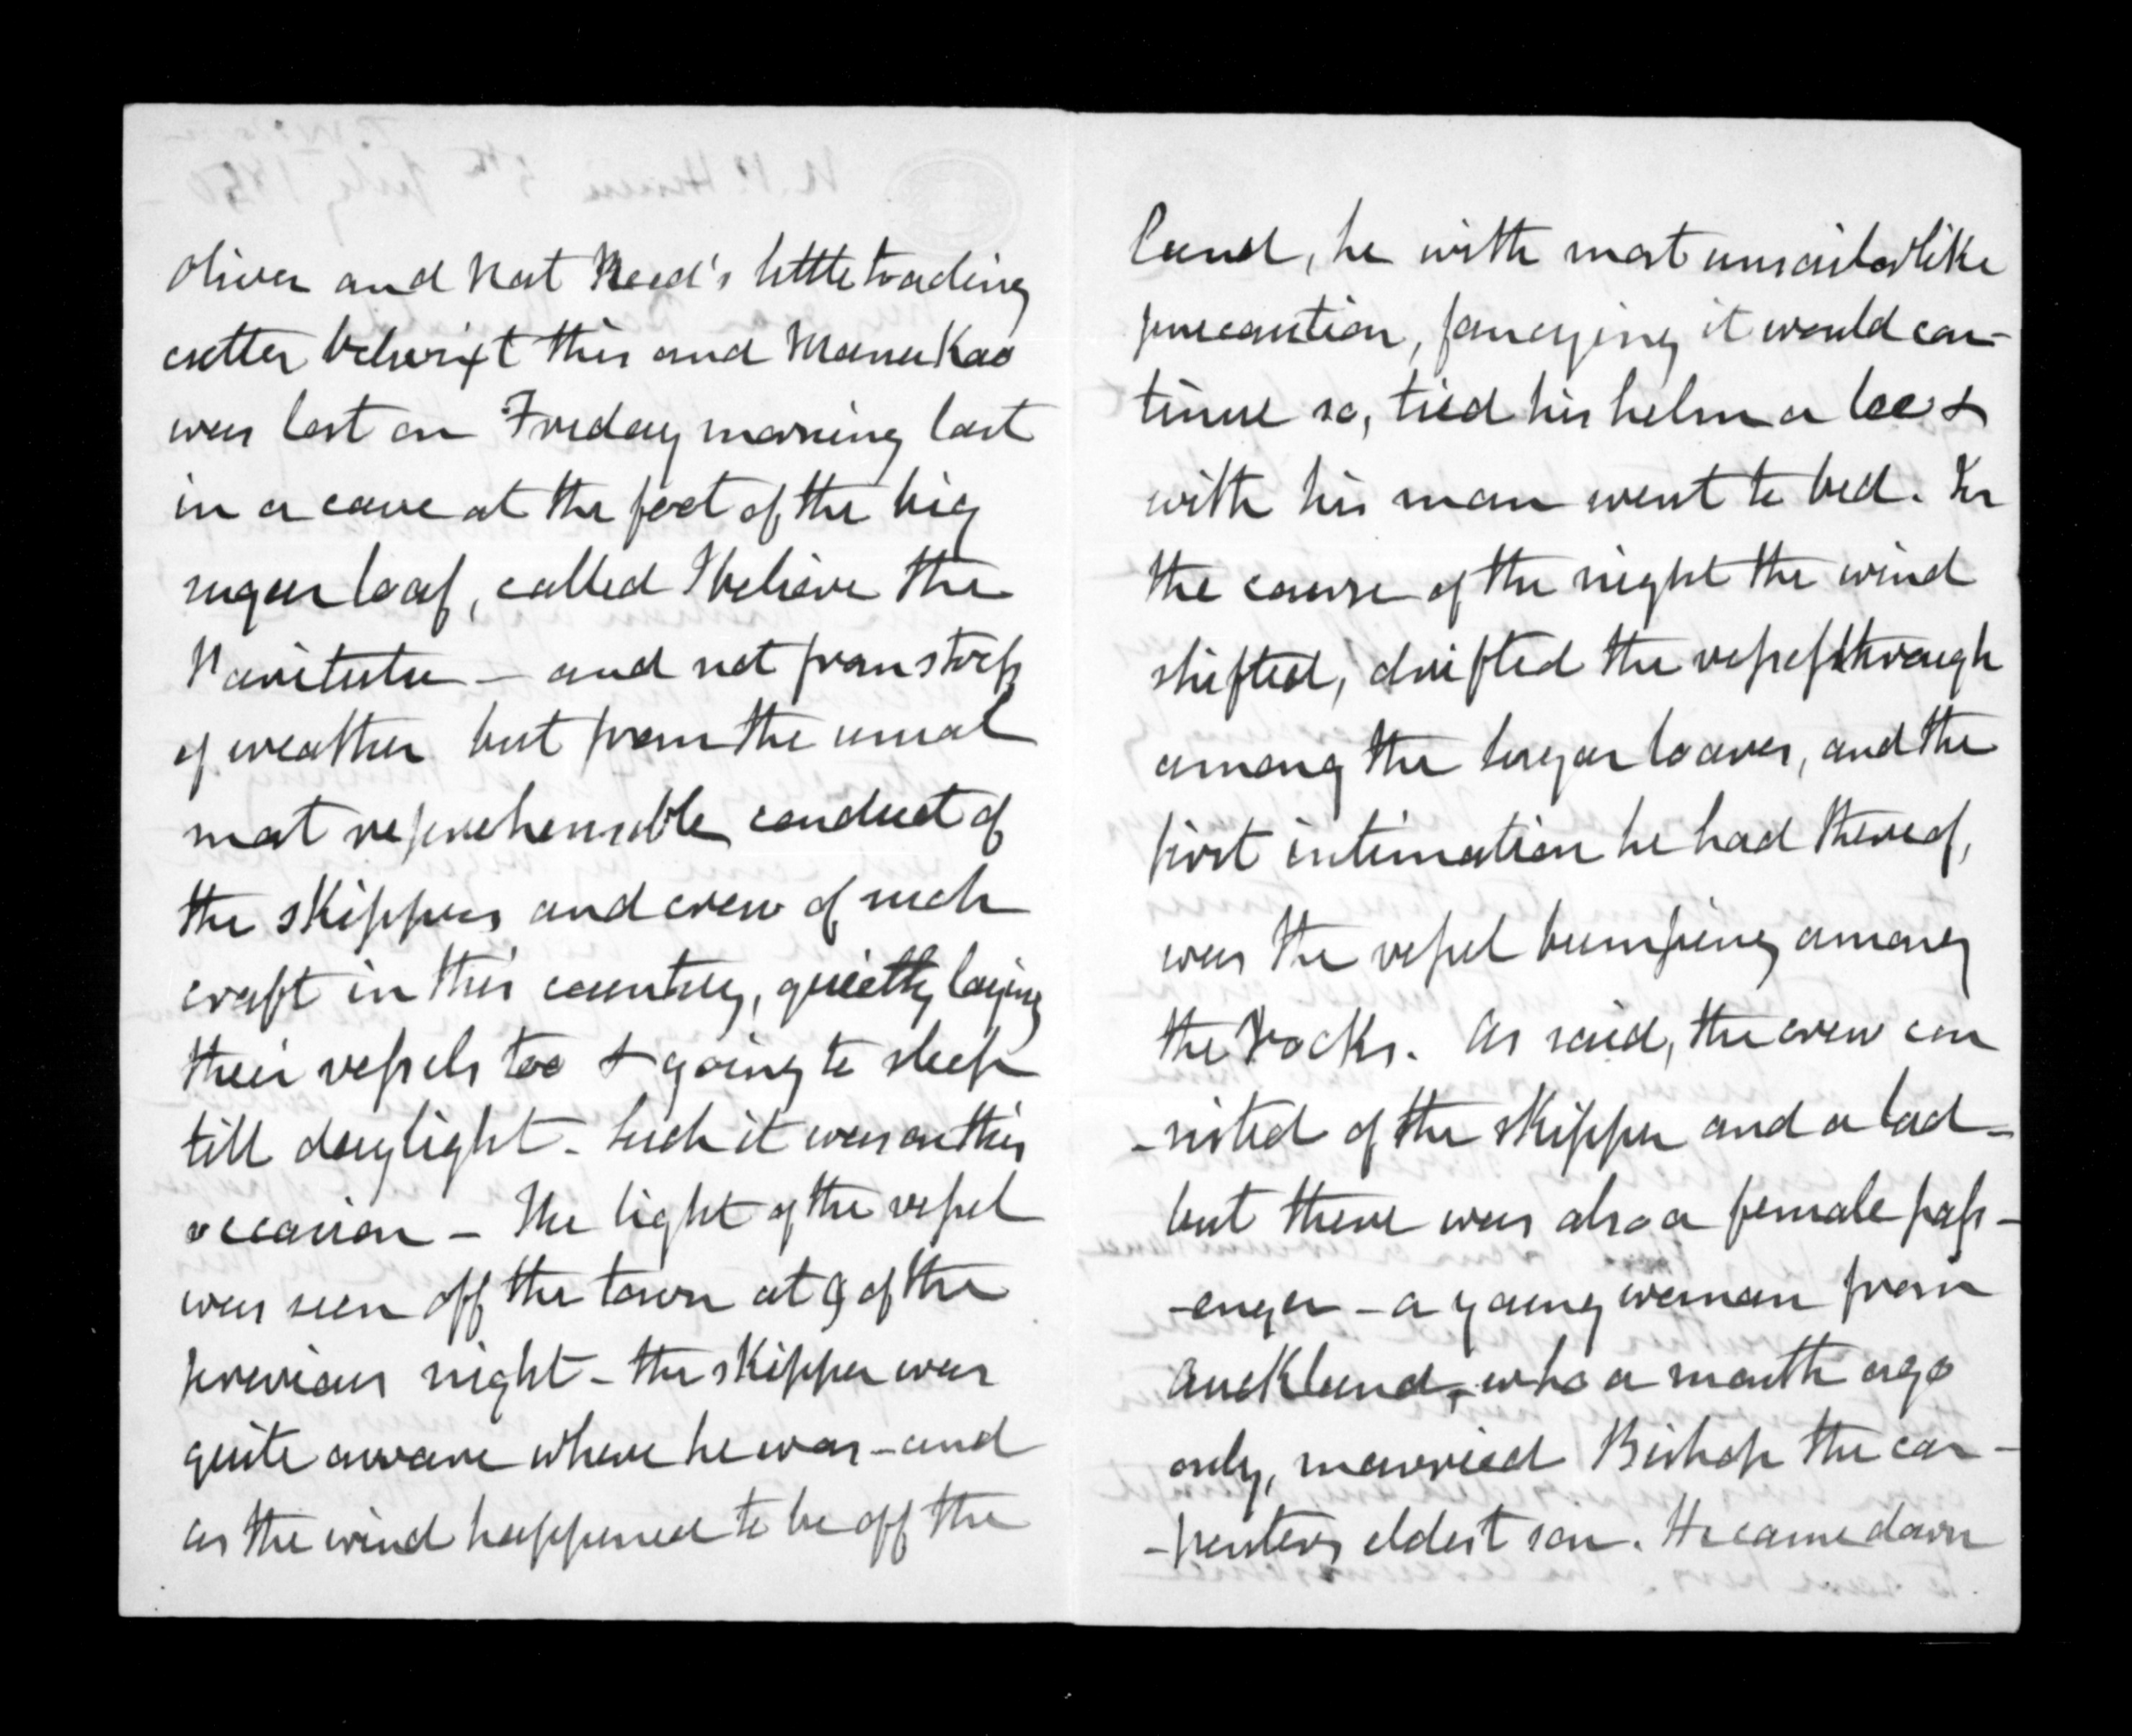 Oliver and Nat Meed's little trading
cutter betwixt this and ManuKao
was lost on Friday morning last
in a cave at the foot of the big
sugar loaf, called I believe the
Paritutu — and not from stress
of weather but from the usual
most reprehensible conduct of
the sKippers and crew of such
craft in this country, quietly laying
their vessels too & going to sleep
till daylight. Such it was on this
occasion — The light of the vessel
was seen off the town at 9 of the
previous night — the sKipper was
quite aware where he was — and
as the wind happened to be off the
land, he with most unsailorliKe
precaution, fancying it would con-
tinue so, tied his helm a lee &
with his man went to bed. In
the course of the night the wind
shifted, drifted the vessel through
among the Sugar loaves, and the
first intimation he had thereof,
was the vessel bumping among
the rocKs. As said, the crew con
-sisted of the sKipper and a lad -
but there was also a female pass-
-enger - a young woman from
AucKland, who a month ago
only, married Bishop the car-
-penters eldest son. He came down